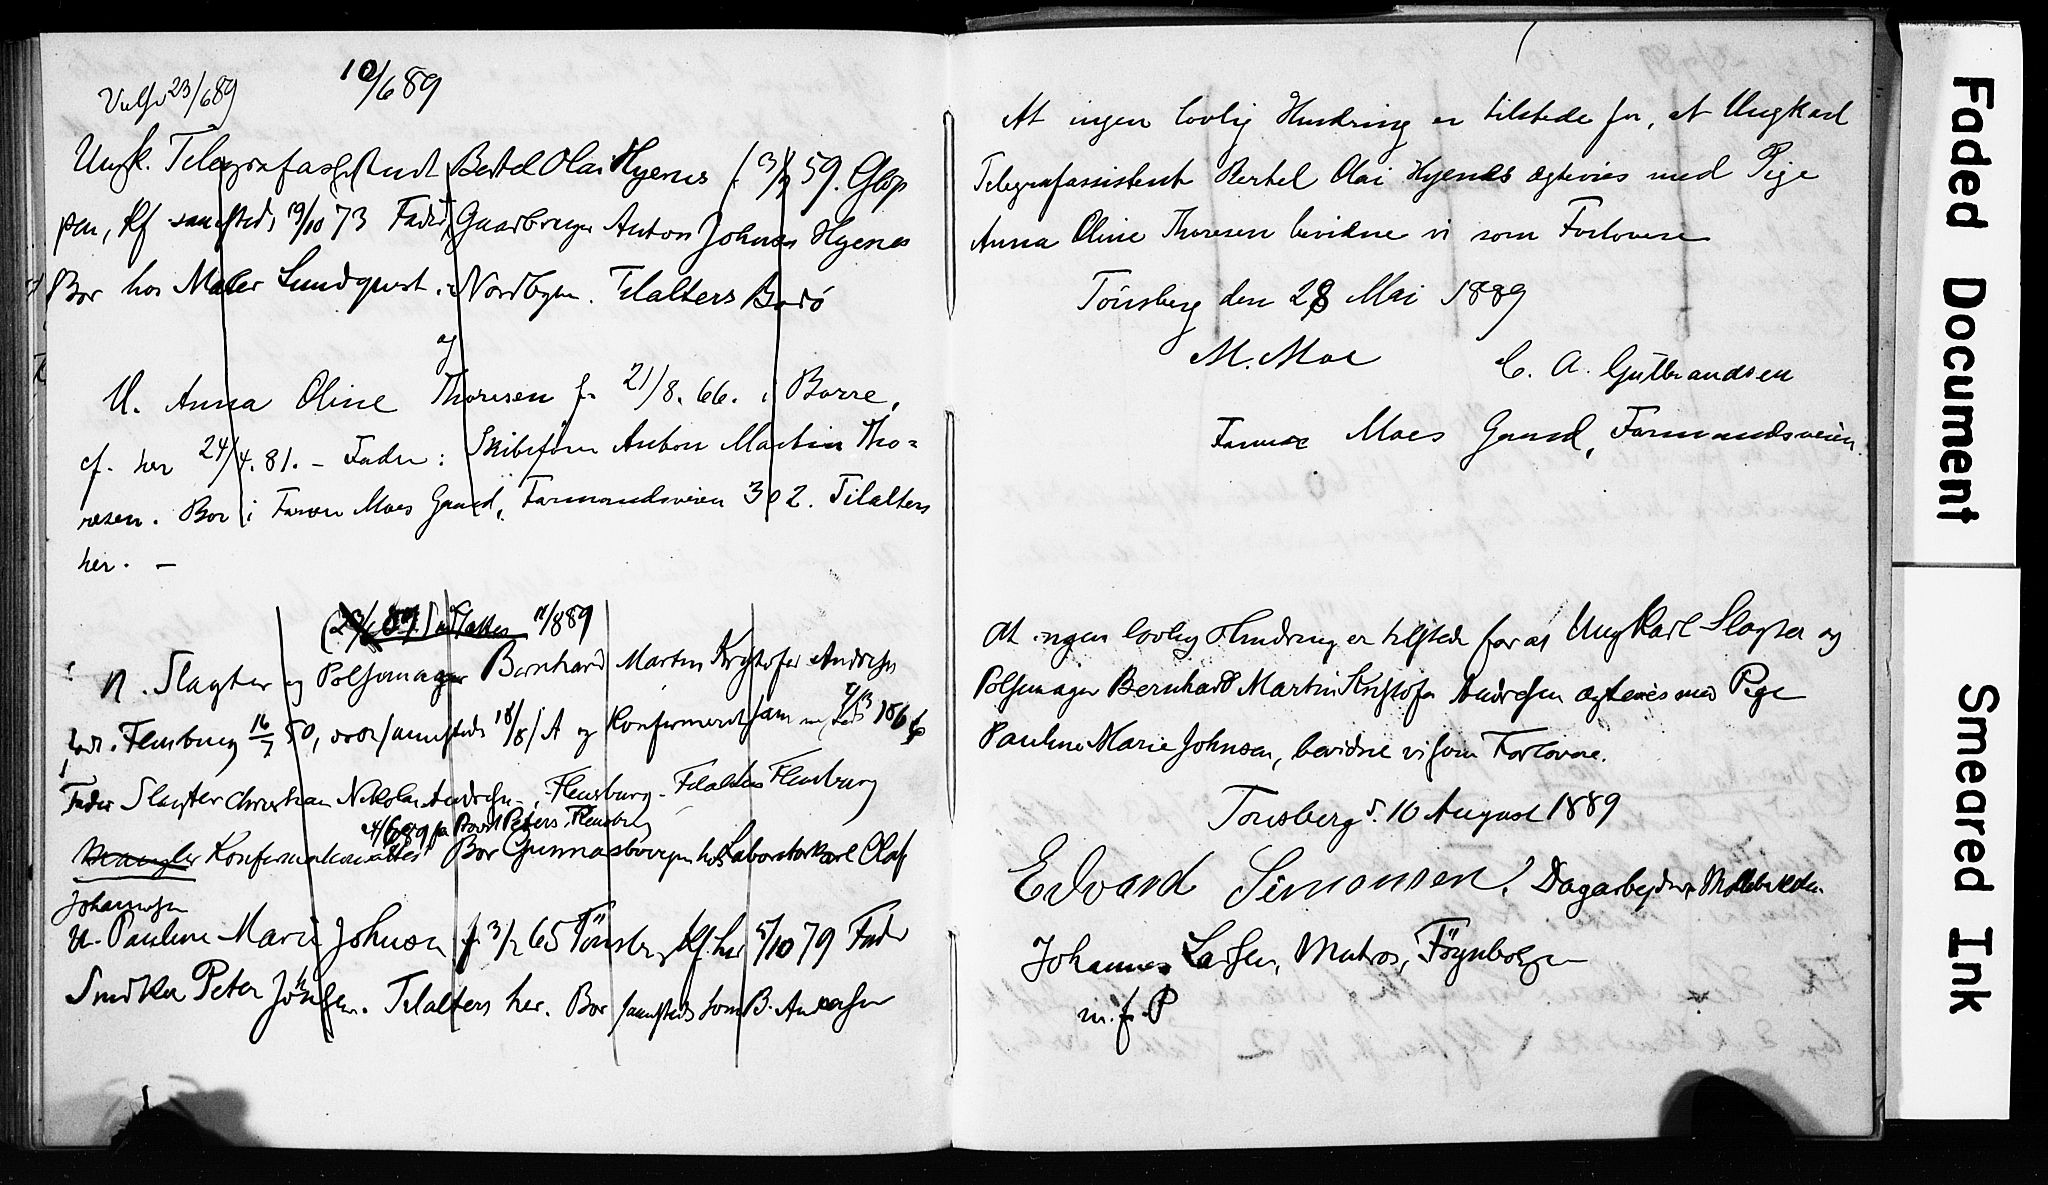 Vielse 23/6 89
10/6 89
Ungk. Telegrafassistent Bertel Olai Hyenes f. 3/7 59. Glop
pen, kf sammesteds 19/10 73 Fader Gaardbruger Anton Johnas Hyenes
Bor hos Maler Lundqvist i Nordbyen. Tilalters Bodö
og
U. Anna Oline Thoresen f. 21/8. 66. i Borre,
cf. her 24/4. 81. – Fader: Skibsfører Anton Martin Tho=
resen. Bor i Farver Moes Gaard, Farmandsveien 302. Tilalters
her. –
11/8 89
N. Slagter og Pølsemager Bernhard Martin Kristofer Andresen
født. Flensburg 16/7 50, sammesteds 18/8 og Konfirmeret
Fader Slagter Christian Nikolai Andresen, Flensburg. Tilalters Flensburg
Pastor Peters, Flensburg
Mangler Konfirmationsattest Bor hos Laboratorkarl Olaf
Johannesen
U. Pauline Marie Johnsen f. 3/2 65 Tönsberg Kf. her 5/10 79 Fader
Snedker Peter Johnsen. Tilalters her. Bor sammesteds som B. Andresen
At ingen lovlig Hindring er tilstede for, at Ungkarl
Telegrafassistent Bertel Olai Hyenes ægtevies med Pige
Anna Oline Thoresen bevidne vi som Forlovere
Tönsberg den 28 Mai 1889
M. Moe
C. A. Gulbrandsen
Farver Moes Gaard, Farmandsveien.
At ingen lovlig Hindring er tilstede for at Ungkarl Slagter og
Pølsemager Bernhard Martin Kristofer Andresen ægtevies med Pige
Pauline Marie Johnsen, bevidne vi som Forlovere.
Tonsberg d. 10 August 1889
Edvard Simonsen, Dagarbeider, Møllebakken
Johannes Larsen, Matros, Föynbolgen
m. f. P
Faded Document
Smeared Ink